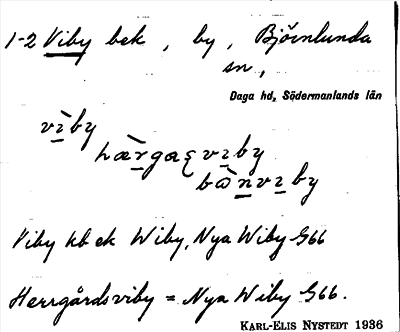 1-2 Viby bek , by , Björnlunda
sn ,
Daga hd, Södermanlands län
vìby
hærgaʂviby
bònviby
Viby kb ek Wiby, Nya Wiby G66
Herrgårdsviby = Nya Wiby G66.
KARL-ELIS NYSTEDT 1936